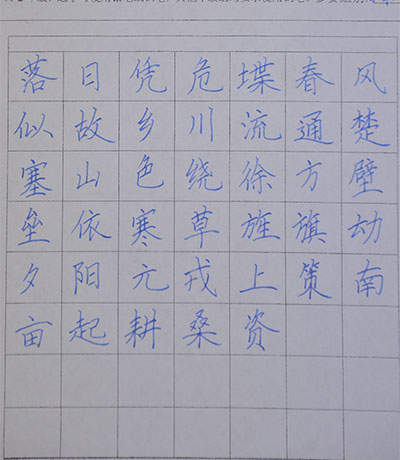 落日凭危堞春风
似故乡川流通楚
塞山色绕徐方壁
垒依寒草旌旗动
夕阳元戎上策南
亩起耕桑资